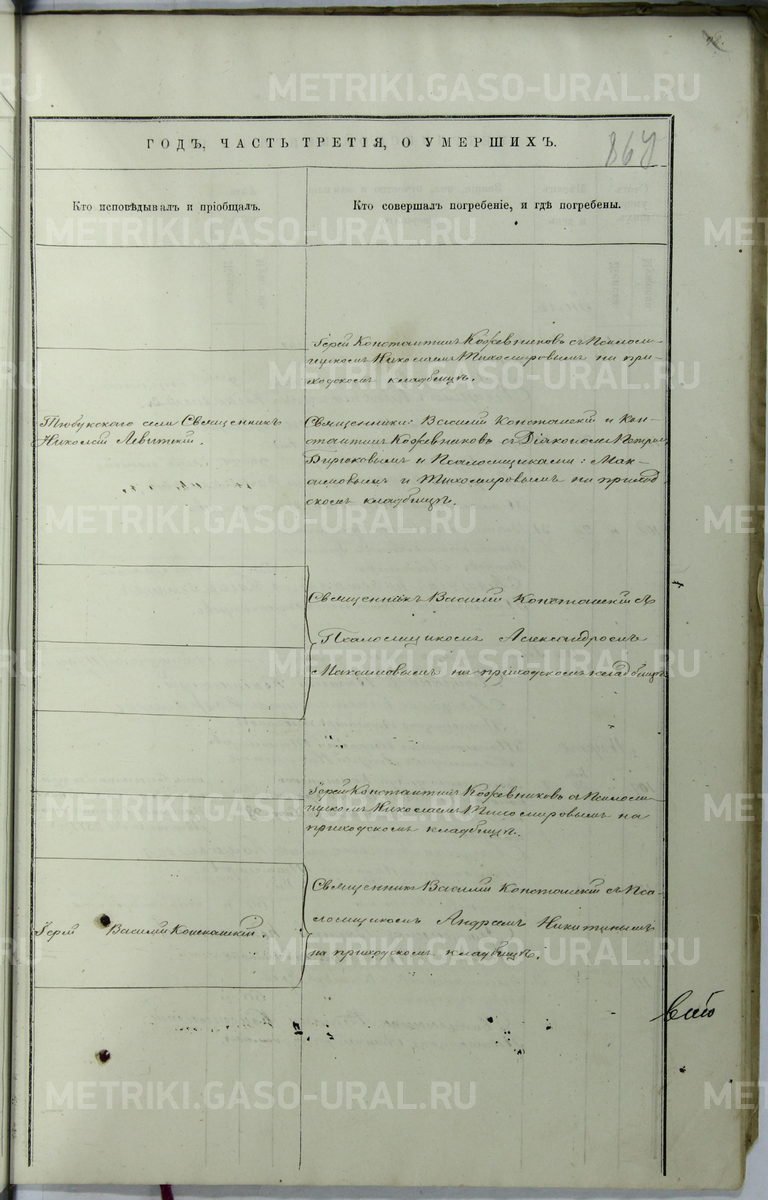 ГОДЪ, ЧАСТЬ ТРЕТІЯ, О УМЕРШИХЪ.
Кто исповѣдывалъ и пріобщалъ.
Кто совершалъ погребеніе, и гдѣ погребены.
Іерей Константинъ Кожевниковъ съ Псаломщ-
щикомъ Николаемъ Тихомировымъ на при-
ходскомъ кладбищѣ.
Тюбукскаго села Священникъ
Николай Левитскій.
Священники: Василій Конеташскій и Кон-
стантинъ Кожевниковъ съ Діакономъ Петромъ
Бирюковымъ и Псаломщиками: Мак-
симовымъ и Тихомировымъ на приход-
скомъ кладбищѣ.
Священникъ Василій съ
Псаломщикомъ Александромъ
Максимовымъ на приходскомъ кладбищѣ
Іерей Константинъ Кожевниковъ съ Псалом-
щикомъ Николаемъ Тихомировымъ на
приходскомъ кладбищѣ.
Іерей Василій
Священникъ Василій съ Пса-
ломщикомъ Андреемъ Никитинымъ
на приходскомъ кладбищѣ.
METRIKI.GASO-URAL.RU